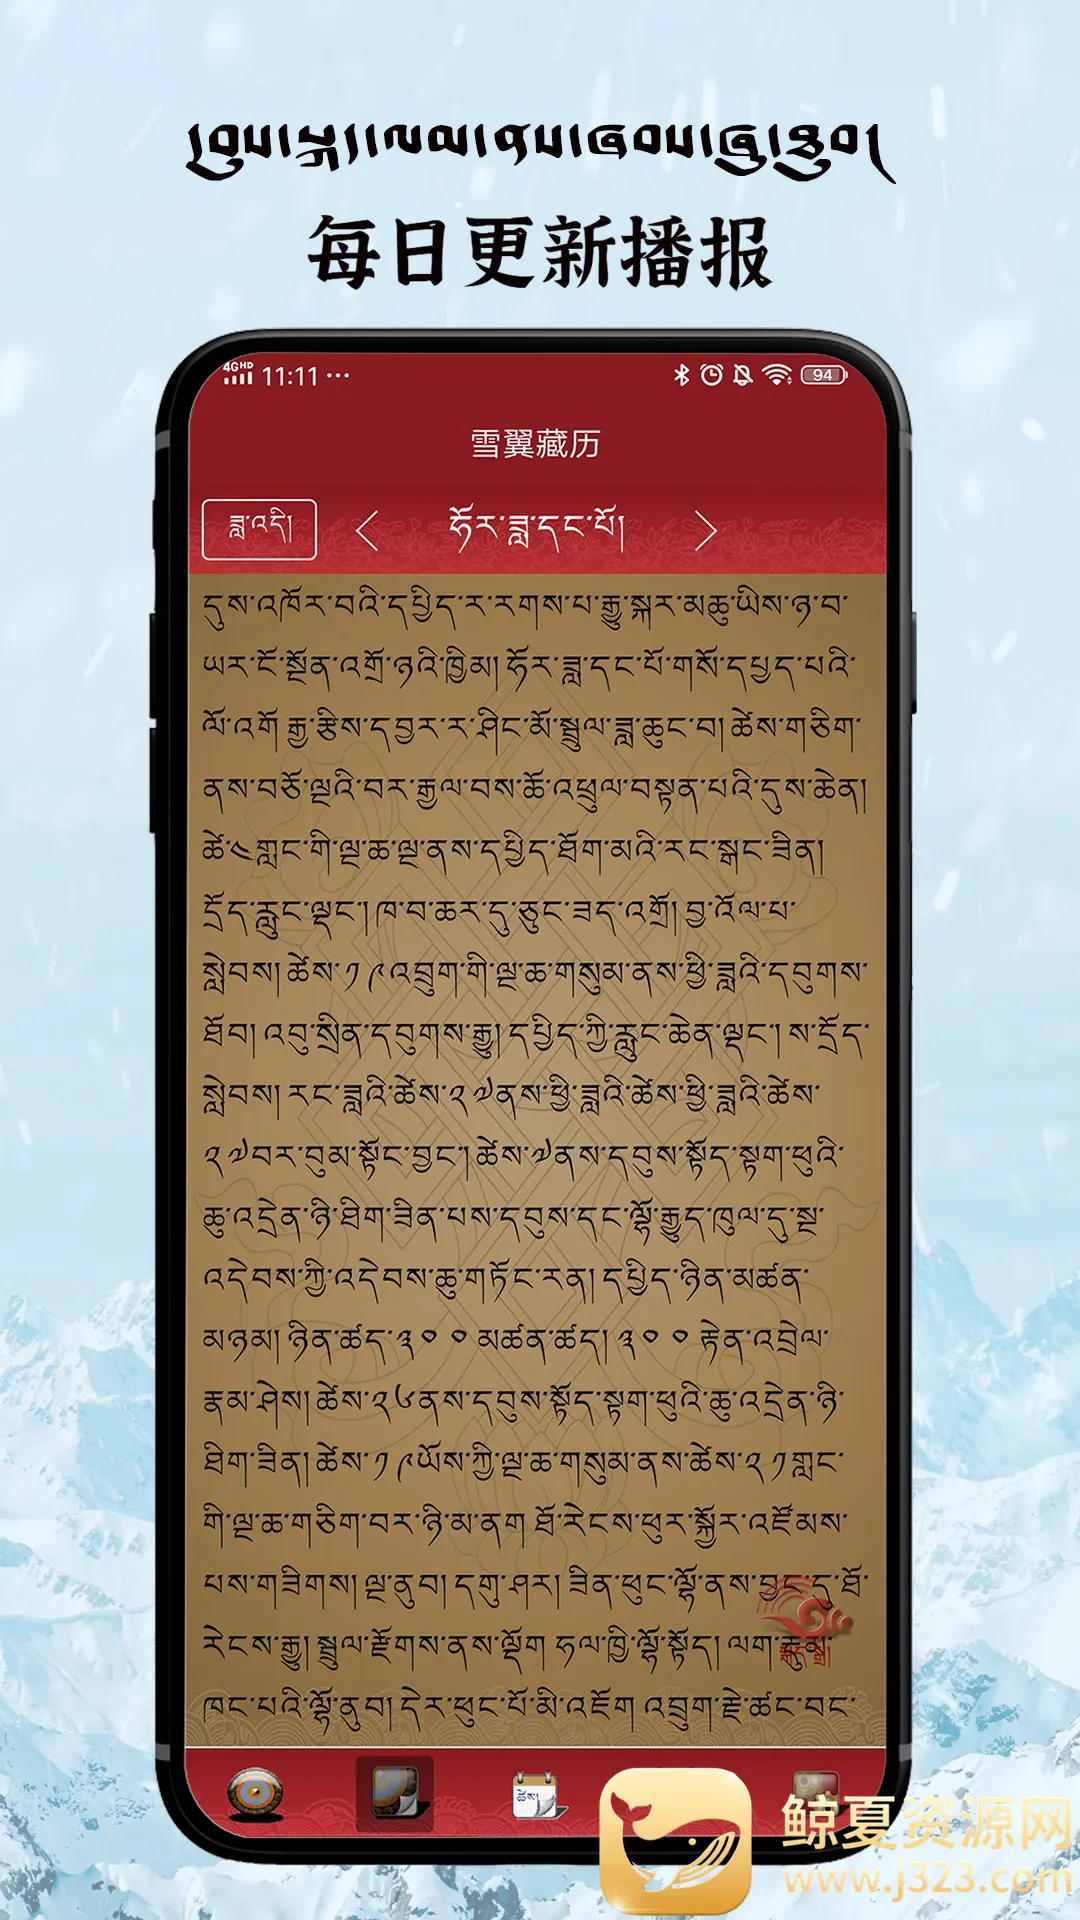 每日更新播报
4G HD 11:11 ··· 94
雪翼藏历
ཟླ་འདི། ཧོར་ཟླ་དང་པོ།
དུས་འཁོར་བའི་དཔྱིད་ར་རགས་པ་རྒྱུ་སྐར་མཆུ་ཡིས་ཉ་བ་
ཡར་ངོ་སྔོན་འགྲོ་ཉའི་ཁྱིམ། ཧོར་ཟླ་དང་པོ་གསོ་དཔྱད་པའི་
ལོ་འགོ རྒྱ་རྩིས་དབྱར་ར་ཤིང་མོ་སྦྲུལ་ཟླ་ཆུང་བ། ཚེས་གཅིག་
ནས་བཅོ་ལྔའི་བར་རྒྱལ་བས་ཆོ་འཕྲུལ་བསྟན་པའི་དུས་ཆེན།
ཚེ་༤གླང་གི་ལྔ་ཆ་ལྔ་ནས་དཔྱིད་ཐོག་མའི་རང་སྒང་ཟིན།
དྲོད་རླུང་ལྡང་། ཁ་བ་ཆར་དུ་ཅུང་ཟད་འགྲོ། བྱ་འོལ་པ་
སླེབས། ཚེས་༡༩འབྲུག་གི་ལྔ་ཆ་གསུམ་ནས་ཕྱི་ཟླའི་དབུགས་
ཐོབ། འབུ་སྲིན་དབུགས་རྒྱུ། དཔྱིད་ཀྱི་རླུང་ཆེན་ལྡང་། ས་དྲོད་
སླེབས། རང་ཟླའི་ཚེས་༢༧ནས་ཕྱི་ཟླའི་ཚེས་ཕྱི་ཟླའི་ཚེས་
༢༧བར་བུམ་སྟོང་བྱུང་། ཚེས་༧ནས་དབུས་སྟོད་སྟག་ཕུའི་
ཆུ་འདྲེན་ཉི་ཐིག་ཟིན་པས་དབུས་དང་ལྷོ་རྒྱུད་ཁུལ་དུ་སྔ་
འདེབས་ཀྱི་འདེབས་ཆུ་གཏོང་རན། དཔྱིད་ཉིན་མཚན་
མཉམ། ཉིན་ཚད་༣༠༠མཚན་ཚད། ༣༠༠རྟེན་འབྲེལ་
རྣམ་ཤེས། ཚེས་༢༦ནས་དབུས་སྟོད་སྟག་ཕུའི་ཆུ་འདྲེན་ཉི་
ཐིག་ཟིན། ཚེས་༡༩ཡོས་ཀྱི་ལྔ་ཆ་གསུམ་ནས་ཚེས་༢༡གླང་
གི་ལྔ་ཆ་གཅིག་བར་ཉི་མ་ནག ཐོ་རེངས་ཕུར་སྐྱོར་འཛོམས་
པས་གཟིགས། ལྔ་ནུབ། དགུ་ཤར། ཟིན་ཕུང་ལྷོ་ནས་བྱང་དུ་ཐོ་
རེངས་རྒྱུ། སྦྲུལ་རྫོགས་ནས་ལྡོག ཧལ་ཁྱི་ལྷོ་སྟོད། ལག་རྗུམ་
ཁང་པའི་ལྷོ་ནུབ། དེར་ཕུང་པོ་མི་འཇོག འབྲུག་རྗེ་ཚང་བང་
ཚེས།
鲸夏资源网
www.j323.com